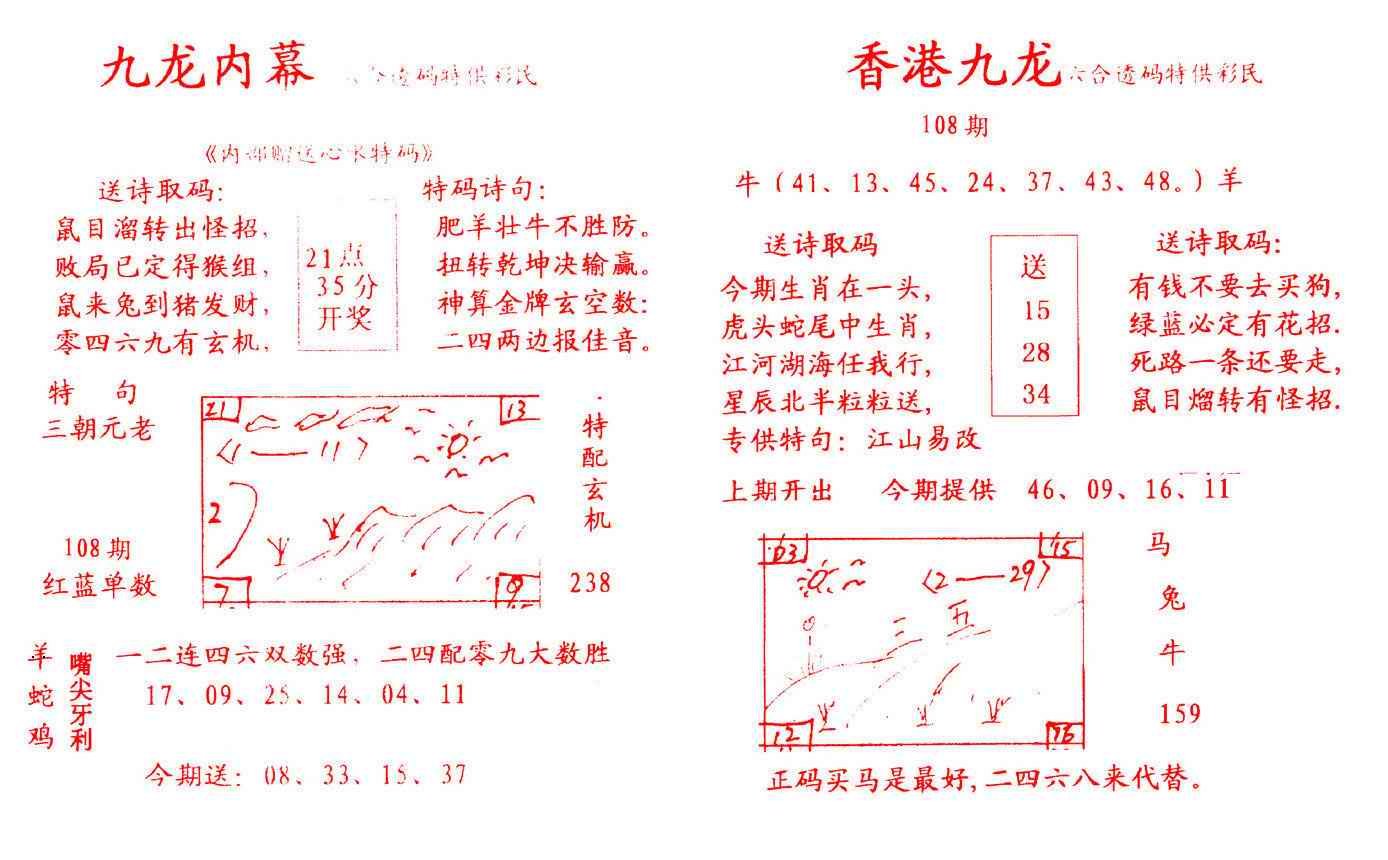 九龙内幕 六合透码特供彩民
《内部赠送心水特码》
送诗取码:
鼠目溜转出怪招,
败局已定得猴组,
鼠来兔到猪发财,
零四六九有玄机,
21点
35分
开奖
特码诗句:
肥羊壮牛不胜防。
扭转乾坤决输赢。
神算金牌玄空数:
二四两边报佳音。
特 句
三朝元老
108期
红蓝单数
21
13
〈1——11〉
2
7
9
特配玄机
238
羊
蛇
鸡
嘴尖牙利
一二连四六双数强, 二四配零九大数胜
17、09、25、14、04、11
今期送: 08、33、15、37
香港九龙 六合透码特供彩民
108期
牛(41、13、45、24、37、43、48。)羊
送诗取码
今期生肖在一头,
虎头蛇尾中生肖,
江河湖海任我行,
星辰北半粒粒送,
专供特句: 江山易改
送
15
28
34
送诗取码:
有钱不要去买狗,
绿蓝必定有花招.
死路一条还要走,
鼠目熘转有怪招.
上期开出 今期提供 46、09、16、11
03
15
〈2——29〉
三 五
12
马
兔
牛
159
正码买马是最好,二四六八来代替。